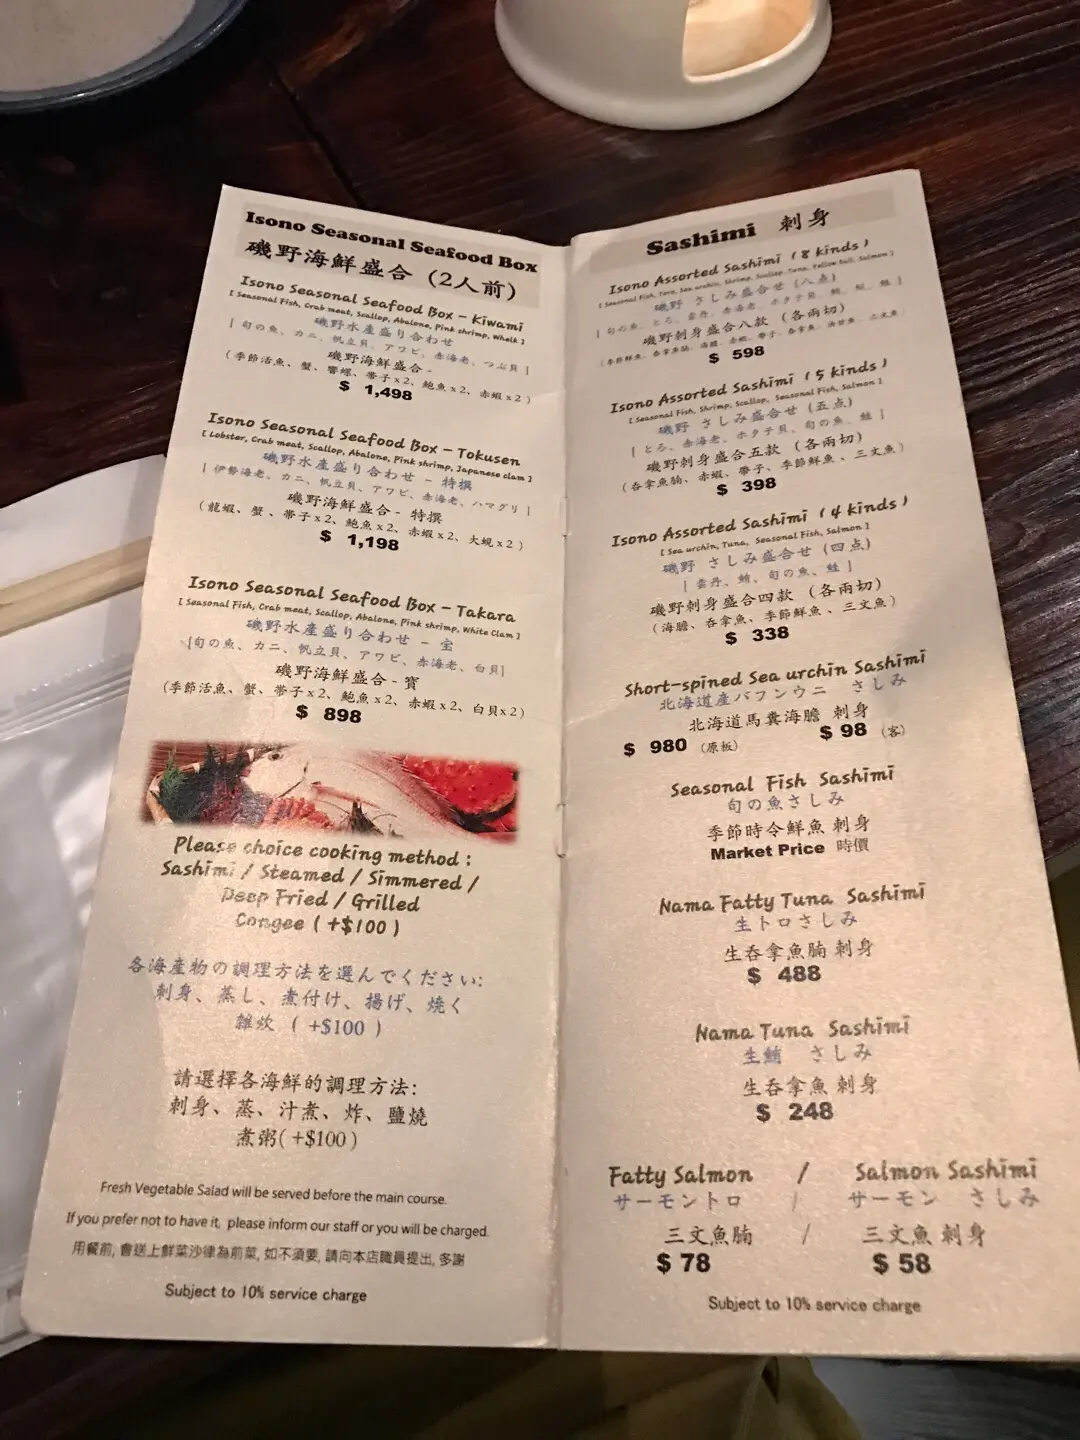 Isono Seasonal Seafood Box
磯野海鮮盛合 (2人前)
Isono Seasonal Seafood Box - Kiwami
[ Seasonal Fish, Crab meat, Scallop, Abalone, Pink shrimp, Whelk ]
磯野水産盛り合わせ
[ 旬の魚、カニ、帆立貝、アワビ、赤海老、つぶ貝 ]
磯野海鮮盛合 -
(季節活魚、蟹、響螺、帶子x2、鮑魚x2、赤蝦x2 )
$ 1,498
Isono Seasonal Seafood Box - Tokusen
[ Lobster, Crab meat, Scallop, Abalone, Pink shrimp, Japanese clam ]
磯野水産盛り合わせ - 特撰
[ 伊勢海老、カニ、帆立貝、アワビ、赤海老、ハマグリ ]
磯野海鮮盛合 - 特撰
(龍蝦、蟹、帶子x2、鮑魚x2、赤蝦x2、大蜆x2 )
$ 1,198
Isono Seasonal Seafood Box - Takara
[ Seasonal Fish, Crab meat, Scallop, Abalone, Pink shrimp, White Clam ]
磯野水産盛り合わせ - 宝
[旬の魚、カニ、帆立貝、アワビ、赤海老、白貝]
磯野海鮮盛合 - 寶
(季節活魚、蟹、帶子x2、鮑魚x2、赤蝦x2、白貝x2 )
$ 898
Please choice cooking method :
Sashimi / Steamed / Simmered /
Deep Fried / Grilled
Congee ( +$100 )
各海産物の調理方法を選んでください:
刺身、蒸し、煮付け、揚げ、焼く
雑炊 ( +$100 )
請選擇各海鮮的調理方法:
刺身、蒸、汁煮、炸、鹽燒
煮粥( +$100 )
Fresh Vegetable Salad will be served before the main course.
If you prefer not to have it, please inform our staff or you will be charged.
用餐前, 會送上鮮菜沙律為前菜, 如不須要, 請向本店職員提出, 多謝
Subject to 10% service charge
Sashimi 刺身
Isono Assorted Sashimi ( 8 kinds )
[ Seasonal Fish, Toro, Sea urchin, Shrimp, Scallop, Tuna, Yellow tail, Salmon ]
磯野 さしみ盛合せ (八点)
[ 旬の魚、とろ、雲丹、赤海老、ホタテ貝、鮪、鰤、鮭 ]
磯野刺身盛合八款 (各兩切)
(季節鮮魚、吞拿魚腩、海膽、赤蝦、帶子、吞拿魚、油甘魚、三文魚)
$ 598
Isono Assorted Sashimi ( 5 kinds )
[ Seasonal Fish, Shrimp, Scallop, Seasonal Fish, Salmon ]
磯野 さしみ盛合せ (五点)
[ とろ、赤海老、ホタテ貝、旬の魚、鮭 ]
磯野刺身盛合五款 (各兩切)
(吞拿魚腩、赤蝦、帶子、季節鮮魚、三文魚)
$ 398
Isono Assorted Sashimi ( 4 kinds )
[ Sea urchin, Tuna, Seasonal Fish, Salmon ]
磯野 さしみ盛合せ (四点)
[ 雲丹、鮪、旬の魚、鮭 ]
磯野刺身盛合四款 (各兩切)
(海膽、吞拿魚、季節鮮魚、三文魚)
$ 338
Short-spined Sea urchin Sashimi
北海道産バフンウニ さしみ
北海道馬糞海膽 刺身
$ 980 (原板) $ 98 (客)
Seasonal Fish Sashimi
旬の魚さしみ
季節時令鮮魚 刺身
Market Price 時價
Nama Fatty Tuna Sashimi
生トロさしみ
生吞拿魚腩 刺身
$ 488
Nama Tuna Sashimi
生鮪 さしみ
生吞拿魚 刺身
$ 248
Fatty Salmon / Salmon Sashimi
サーモントロ / サーモン さしみ
三文魚腩 / 三文魚 刺身
$ 78 $ 58
Subject to 10% service charge